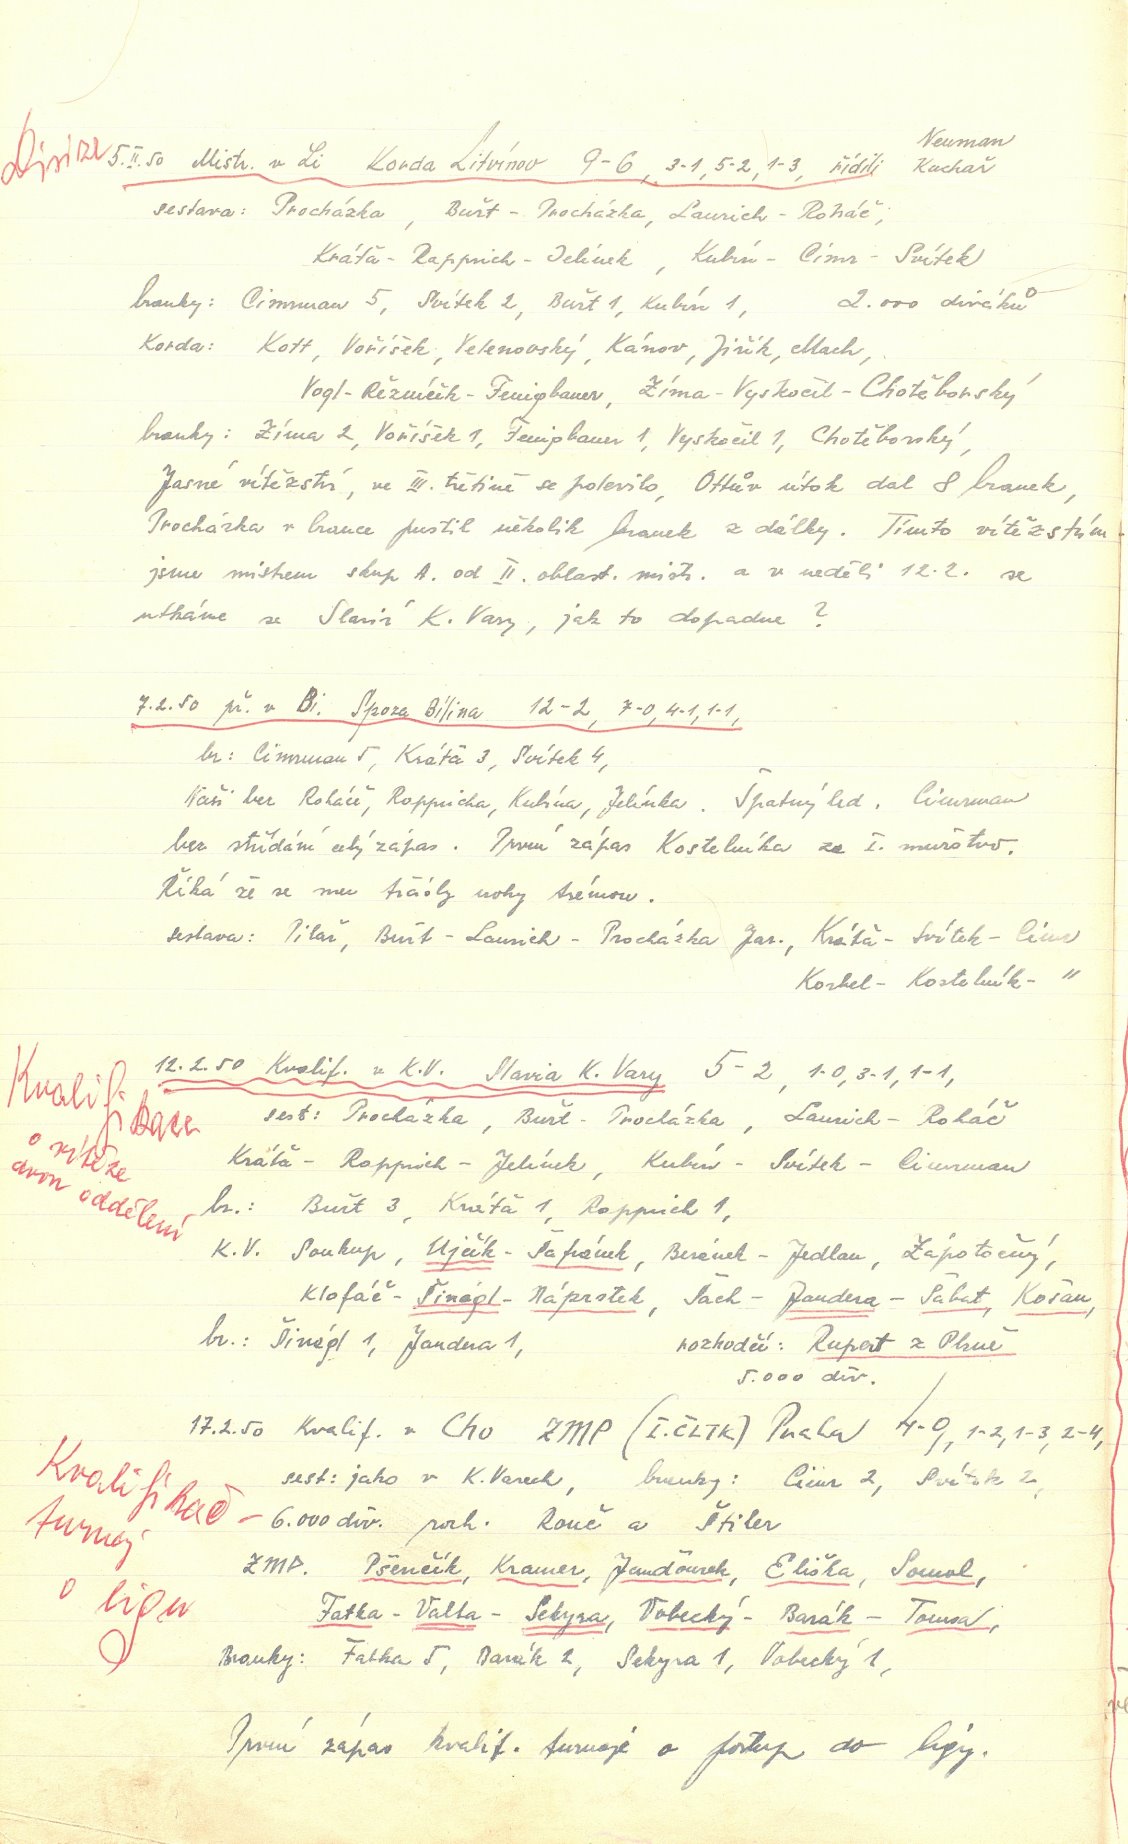 Divize
5.II.50 Mistr. v Li Korda Litvínov 9-6, 3-1, 5-2, 1-3, řídili Neuman
Kuchař
sestava: Procházka, Buřt - Procházka, Laurich - Roháč,
Kráťa - Rappich - Jelínek, Kubín - Cimr - Svítek
branky: Cimrman 5, Svítek 2, Buřt 1, Kubín 1, 2.000 diváků
Korda: Kott, Voříšek, Velenovský, Kánov, Jiřík, Mach,
Vogl - Řezníček - Fenigbauer, Zíma - Vyskočil - Chotěborský
branky: Zíma 2, Voříšek 1, Fenigbauer 1, Vyskočil 1, Chotěborský,
Jasné vítězství, ve III. třetině se polevilo, Ottův útok dal 8 branek,
Procházka v brance pustil několik branek z dálky. Tímto vítězstvím
jsme mistrem skup A. od II. oblast. mistr. a v neděli 12.2. se
utkáme se Slavií K. Vary, jak to dopadne?
7.2.50 př. v Bi. Spoza Bílina 12-2, 7-0, 4-1, 1-1,
br: Cimrman 5, Kráťa 3, Svítek 4,
Naši bez Roháče, Rappicha, Kubína, Jelínka. Špatný led. Cimrman
bez střídání celý zápas. První zápas Kostelníka za I. mužstvo.
Říká že se mu třásly nohy trémou.
sestava: Pilař, Buřt - Laurich - Procházka Jar., Kráťa - Svítek - Cimr
Korbel - Kostelník - "
Kvalifikace
o vítěze
dvou oddělení
12.2.50 Kvalif. v K.V. Slavia K. Vary 5-2, 1-0, 3-1, 1-1,
sest: Procházka, Buřt - Procházka, Laurich - Roháč
Kráťa - Rappich - Jelínek, Kubín - Svítek - Cimrman
br.: Buřt 3, Kráťa 1, Rappich 1,
K.V. Soukup, Ujčík - Šafránek, Beránek - Jedlan, Zápotočný,
Klofáč - Šinágl - Náprstek, Šach - Jandera - Šabat, Košan,
br.: Šinágl 1, Jandera 1, rozhodčí: Rupert z Plzně
5.000 div.
17.2.50 Kvalif. v Cho ZMP (I.ČLTK) Praha 4-9, 1-2, 1-3, 2-4,
Kvalifikač-
turnaj
o ligu
sest: jako v K.Varech, branky: Cimr 2, Svítek 2,
6.000 div. rozh. Rouč a Štiler
ZMP. Pšenčík, Kramer, Jandourek, Eliška, Somol,
Fatka - Valta - Sekyra, Vobecký - Barák - Tomsa,
Branky: Fatka 5, Barák 2, Sekyra 1, Vobecký 1,
První zápas kvalif. turnaje o postup do ligy.